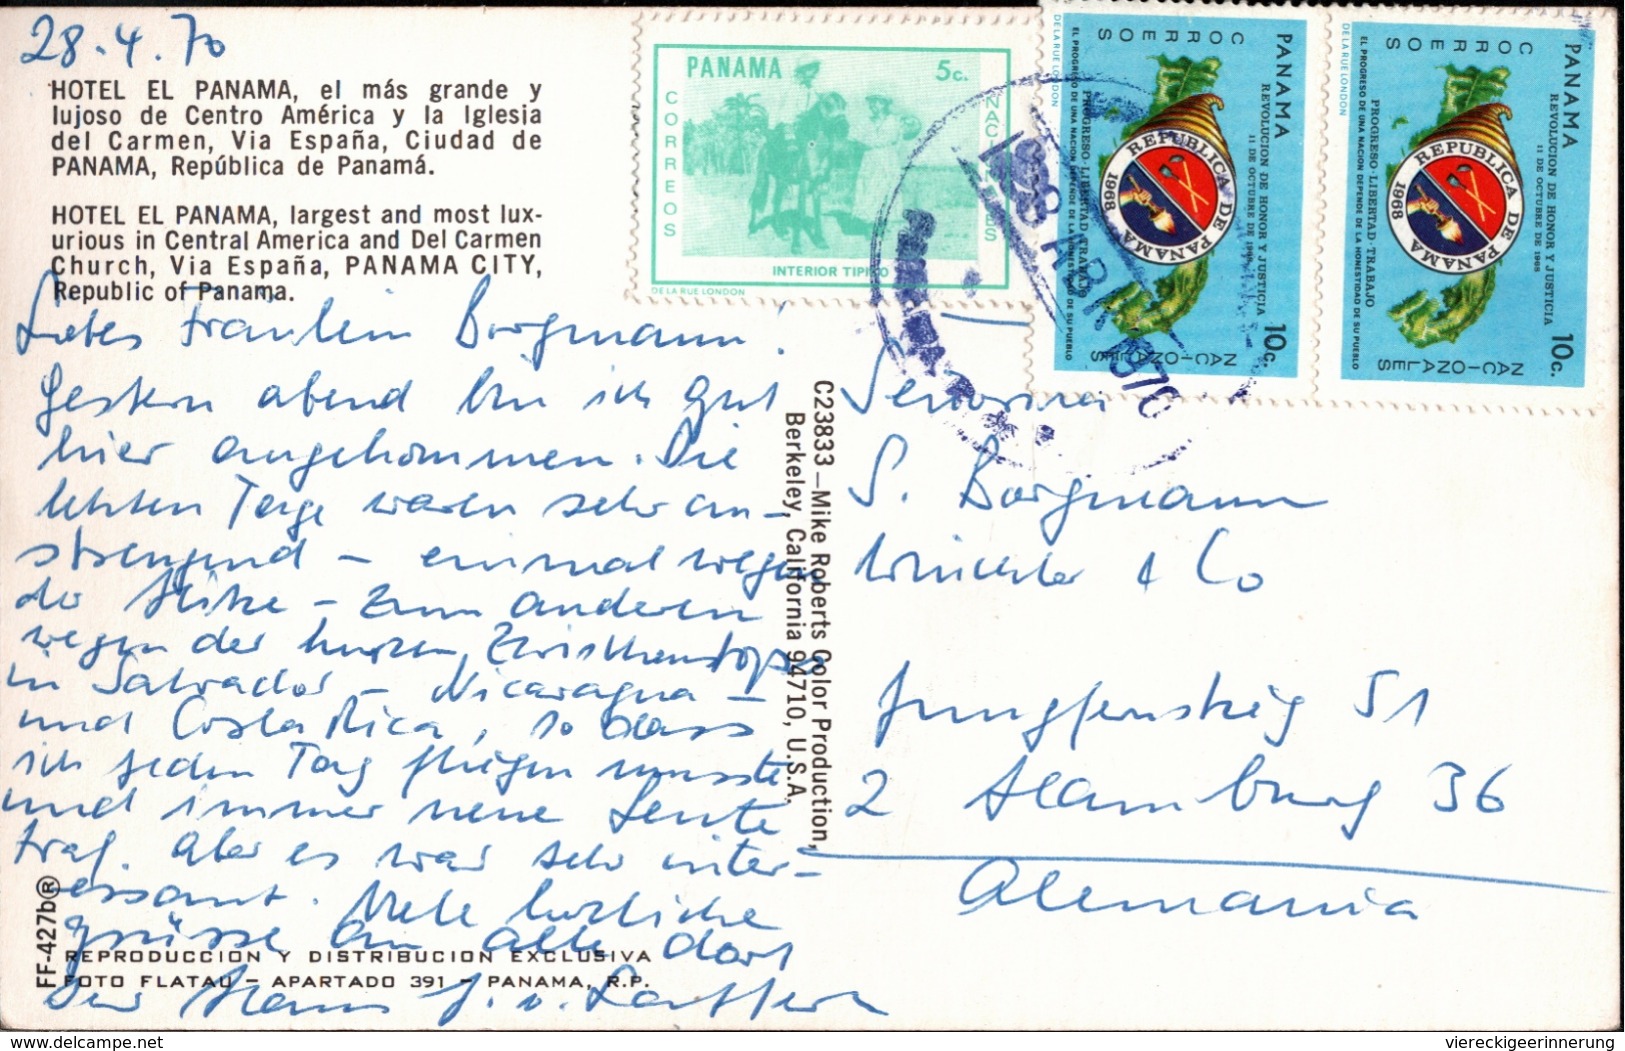 28.4.70
HOTEL EL PANAMA, el más grande y
lujoso de Centro América y la Iglesia
del Carmen, Via España, Ciudad de
PANAMA, República de Panamá.
HOTEL EL PANAMA, largest and most lux-
urious in Central America and Del Carmen
Church, Via España, PANAMA CITY,
Republic of Panama.
Liebes Fräulein Borgmann!
Gestern abend bin ich gut
hier angekommen. Die
letzten Tage waren sehr an-
strengend – einmal wegen
der Hitze – zum anderen
wegen der kurzen Zwischenstops
in Salvador – Nicaragua –
und Costa Rica, so dass
ich jeden Tag fliegen musste
und immer neue Leute
traf. Aber es war sehr inter-
essant. Viele herzliche
Grüsse an alle dort
Ihr Hans J. v.
REPRODUCCION Y DISTRIBUCION EXCLUSIVA
FOTO FLATAU – APARTADO 391 – PANAMA, R.P.
FF-427b®
C23833—Mike Roberts Color Production,
Berkeley, California 94710, U.S.A.
PANAMA 5c.
CORREOS
NACIONALES
INTERIOR TIPICO
DE LA RUE LONDON
PANAMA
REVOLUCION DE HONOR Y JUSTICIA
11 DE OCTUBRE DE 1968
10c.
CORREOS
NACIONALES
REPUBLICA DE PANAMA
1968
PROGRESO·LIBERTAD·TRABAJO
EL PROGRESO DE UNA NACION DEPENDE DE LA HONESTIDAD DE SU PUEBLO
DE LA RUE LONDON
PANAMA
REVOLUCION DE HONOR Y JUSTICIA
11 DE OCTUBRE DE 1968
10c.
CORREOS
NACIONALES
REPUBLICA DE PANAMA
1968
PROGRESO·LIBERTAD·TRABAJO
EL PROGRESO DE UNA NACION DEPENDE DE LA HONESTIDAD DE SU PUEBLO
DE LA RUE LONDON
28 ABR 1970
Senorina
S. Borgmann
Winckler & Co
Jungfernstieg 51
2 Hamburg 36
Alemania
delcampe.net
viereckigeerinnerung